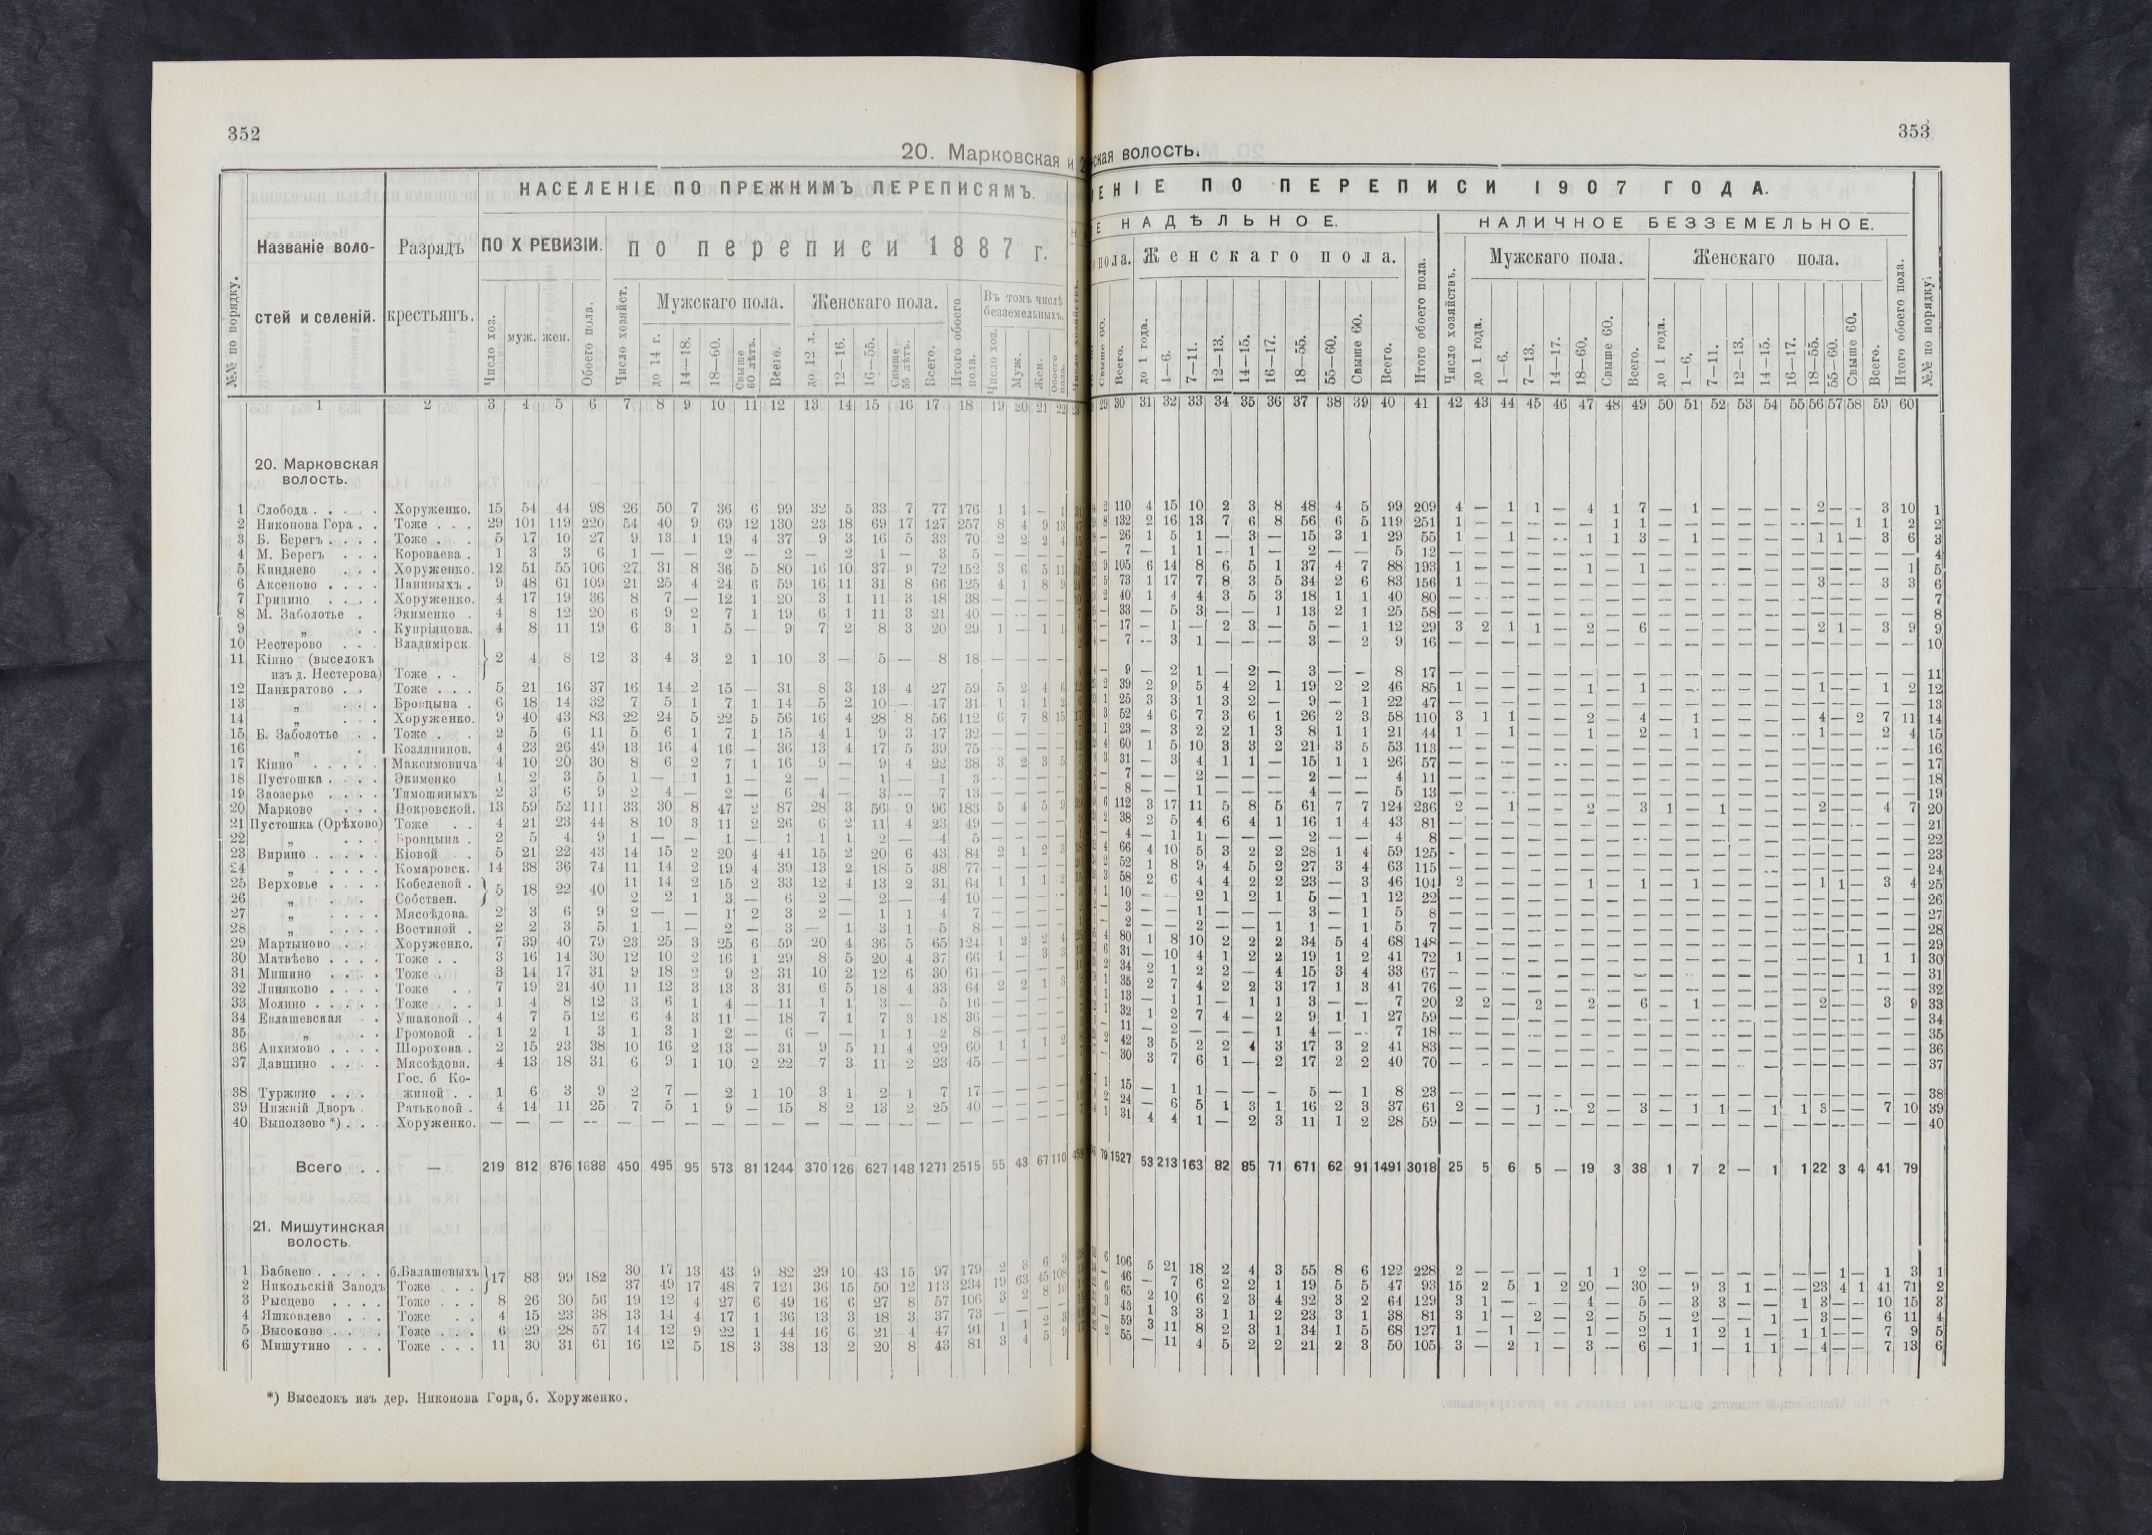 352
353
20. Марковская и 2
ская волость.
НАСЕЛЕНІЕ ПО ПРЕЖНИМЪ ПЕРЕПИСЯМЪ.
ЕНІЕ ПО ПЕРЕПИСИ 1907 ГОДА.
НАДѢЛЬНОЕ.
НАЛИЧНОЕ БЕЗЗЕМЕЛЬНОЕ.
№№ по порядку.
Названіе воло-
стей и селеній.
Разрядъ
крестьянъ.
ПО X РЕВИЗІИ.
по переписи 1887 г.
Число хоз.
муж. жен.
Обоего пола.
Число хозяйст.
Мужскаго пола.
до 14 г. 14—18. 18—60. Свыше 60 лѣтъ. Всего.
Женскаго пола.
до 12 л. 12—16. 16—55. Свыше 55 лѣтъ. Всего.
Итого обоего пола.
Въ томъ числѣ безземельныхъ.
Число хоз. Муж. Жен. Обоего пола.
пола.
Свыше 60. Всего.
Женскаго пола.
до 1 года. 1—6. 7—11. 12—13. 14—15. 16—17. 18—55. 55—60. Свыше 60. Всего.
Итого обоего пола.
Число хозяйствъ.
Мужскаго пола.
до 1 года. 1—6. 7—13. 14—17. 18—60. Свыше 60. Всего.
Женскаго пола.
до 1 года. 1—6. 7—11. 12—13. 14—15. 16—17. 18—55. 55—60. Свыше 60. Всего.
Итого обоего пола.
№№ по порядку.
1 2 3 4 5 6 7 8 9 10 11 12 13 14 15 16 17 18 19 20 21 22
29 30 31 32 33 34 35 36 37 38 39 40 41 42 43 44 45 46 47 48 49 50 51 52 53 54 55 56 57 58 59 60
20. Марковская
волость.
1 Слобода . . . . . Хоруженко. 15 54 44 98 26 50 7 36 6 99 32 5 33 7 77 176 1 1 — 1
2 110 4 15 10 2 3 8 48 4 5 99 209 4 — 1 1 — 4 1 7 — 1 — — — — 2 — — 3 10 1
2 Никонова Гора . . Тоже . . . 29 101 119 220 54 40 9 69 12 130 23 18 69 17 127 257 8 4 9 13
8 132 2 16 13 7 6 8 56 6 5 119 251 1 — — — — — 1 1 — — — — — — — — 1 1 2 2
3 Б. Берегъ . . . . Тоже . . 5 17 10 27 9 13 1 19 4 37 9 3 16 5 33 70 2 2 2 4
— 26 1 5 1 — 3 — 15 3 1 29 55 1 — 1 — — 1 1 3 — 1 — — — — 1 1 — 3 6 3
4 М. Берегъ . . . Короваева . 1 3 3 6 1 — — 2 — 2 — 2 1 — 3 5 — — — —
— 7 — 1 1 — 1 — 2 — — 5 12 — — — — — — — — — — — — — — — — — — — 4
5 Киндяево . . . Хоруженко. 12 51 55 106 27 31 8 36 5 80 16 10 37 9 72 152 3 6 5 11
9 105 6 14 8 6 5 1 37 4 7 88 193 1 — — — — 1 — 1 — — — — — — — — — — 1 5
6 Аксеново . . . . Паниныхъ . 9 48 61 109 21 25 4 24 6 59 16 11 31 8 66 125 4 1 8 9
5 73 1 17 7 8 3 5 34 2 6 83 156 1 — — — — — — — — — — — — — 3 — — 3 3 6
7 Гридино . . . . Хоруженко. 4 17 19 36 8 7 — 12 1 20 3 1 11 3 18 38 — — — —
2 40 1 4 4 3 5 3 18 1 1 40 80 — — — — — — — — — — — — — — — — — — — 7
8 М. Заболотье . Экименко . 4 8 12 20 6 9 2 7 1 19 6 1 11 3 21 40 — — — —
— 33 — 5 3 — — 1 13 2 1 25 58 — — — — — — — — — — — — — — — — — — — 8
9 „ . . Купріянова. 4 8 11 19 6 3 1 5 — 9 7 2 8 3 20 29 1 — 1 1
— 17 — 1 — 2 3 — 5 — 1 12 29 3 2 1 1 — 2 — 6 — — — — — — 2 1 — 3 9 9
10 Нестерово . . . Владимірск.
— 7 — 3 1 — — — 3 — 2 9 16 — — — — — — — — — — — — — — — — — — — 10
11 Кінно (выселокъ } 2 4 8 12 3 4 3 2 1 10 3 — 5 — 8 18 — — — —
изъ д. Нестерова) Тоже . .
— 9 — 2 1 — 2 — 3 — — 8 17 — — — — — — — — — — — — — — — — — — — 11
12 Панкратово . . Тоже . . . 5 21 16 37 16 14 2 15 — 31 8 3 13 4 27 59 5 2 4 6
2 39 2 9 5 4 2 1 19 2 2 46 85 1 — — — — 1 — 1 — — — — — — 1 — — 1 2 12
13 „ . . . Бровцына . 6 18 14 32 7 5 1 7 1 14 5 2 10 — 17 31 1 1 1 2
1 25 3 3 1 3 2 — 9 — 1 22 47 — — — — — — — — — — — — — — — — — — — 13
14 „ . . . Хоруженко. 9 40 43 83 22 24 5 22 5 56 16 4 28 8 56 112 6 7 8 15
3 52 4 6 7 3 6 1 26 2 3 58 110 3 1 1 — — 2 — 4 — 1 — — — — 4 — 2 7 11 14
15 Б. Заболотье . . Тоже . . 2 5 6 11 5 6 1 7 1 15 4 1 9 3 17 32 — — — —
1 23 — 3 2 2 1 3 8 1 1 21 44 1 — 1 — — 1 — 2 — 1 — — — — 1 — — 2 4 15
16 „ . Козлянинов. 4 23 26 49 13 16 4 16 — 36 13 4 17 5 39 75 — — — —
4 60 1 5 10 3 3 2 21 3 5 53 113 — — — — — — — — — — — — — — — — — — — 16
17 Кінно . . . . . Максимовича 4 10 20 30 8 6 2 7 1 16 9 — 9 4 22 38 3 2 3 5
3 31 — 3 4 1 1 — 15 1 1 26 57 — — — — — — — — — — — — — — — — — — — 17
18 Пустошка . . . . Экименко 1 2 3 5 1 — 1 1 — 2 — — 1 — 1 3 — — — —
— 7 — — 2 — — — 2 — — 4 11 — — — — — — — — — — — — — — — — — — — 18
19 Заозерье . . . . Тимошиныхъ 2 3 6 9 2 4 — 2 — 6 4 — 3 — 7 13 — — — —
— 8 — — 1 — — — 4 — — 5 13 — — — — — — — — — — — — — — — — — — — 19
20 Марково . . . Покровской. 13 59 52 111 33 30 8 47 2 87 28 3 56 9 96 183 5 4 5 9
6 112 3 17 11 5 8 5 61 7 7 124 236 2 — 1 — — 2 — 3 1 — 1 — — — 2 — — 4 7 20
21 Пустошка (Орѣхово) Тоже . . 4 21 23 44 8 10 3 11 2 26 6 2 11 4 23 49 — — — —
2 38 2 5 4 6 4 1 16 1 4 43 81 — — — — — — — — — — — — — — — — — — — 21
22 „ . . . Бровцына . 2 5 4 9 1 — — 1 — 1 1 1 2 — 4 5 — — — —
— 4 — 1 1 — — — 2 — — 4 8 — — — — — — — — — — — — — — — — — — — 22
23 Вирино . . . . . Кіовой . 5 21 22 43 14 15 2 20 4 41 15 2 20 6 43 84 2 1 2 3
4 66 4 10 5 3 2 2 28 1 4 59 125 — — — — — — — — — — — — — — — — — — — 23
24 „ . . . . . Комаровск. 14 38 36 74 11 14 2 19 4 39 13 2 18 5 38 77 — — — —
2 52 1 8 9 4 5 2 27 3 4 63 115 — — — — — — — — — — — — — — — — — — — 24
25 Верховье . . . . Кобелевой . } 5 18 22 40 11 14 2 15 2 33 12 4 13 2 31 64 1 1 1 2
3 58 2 6 4 4 2 2 23 — 3 46 104 2 — — — — 1 — 1 — 1 — — — — 1 1 — 3 4 25
26 „ . . . . Собствен. 2 2 1 3 — 6 2 — 2 — 4 10 — — — —
1 10 — — 2 1 2 1 5 — 1 12 22 — — — — — — — — — — — — — — — — — — — 26
27 „ . . . . Мясоѣдова. 2 3 6 9 2 — — 1 2 3 2 — 1 1 4 7 — — — —
— 3 — — 1 — — — 3 — 1 5 8 — — — — — — — — — — — — — — — — — — — 27
28 „ . . . . Востиной . 2 2 3 5 1 1 — 2 — 3 — 1 3 1 5 8 — — — —
— 2 — — 2 — — 1 1 — 1 5 7 — — — — — — — — — — — — — — — — — — — 28
29 Мартыново . . Хоруженко. 7 39 40 79 23 25 3 25 6 59 20 4 36 5 65 124 1 2 2 4
4 80 1 8 10 2 2 2 34 5 4 68 148 — — — — — — — — — — — — — — — — — — — 29
30 Матвѣево . . . . Тоже . . 3 16 14 30 12 10 2 16 1 29 8 5 20 4 37 66 1 — 3 3
6 31 — 10 4 1 2 2 19 1 2 41 72 1 — — — — — — — — — — — — — — — 1 1 1 30
31 Мишино . . . . Тоже . 3 14 17 31 9 18 2 9 2 31 10 2 12 6 30 61 — — — —
2 34 2 1 2 2 — 4 15 3 4 33 67 — — — — — — — — — — — — — — — — — — — 31
32 Линяково . . . Тоже . . 7 19 21 40 11 12 3 13 3 31 6 5 18 4 33 64 2 2 1 3
1 35 2 7 4 2 2 3 17 1 3 41 76 — — — — — — — — — — — — — — — — — — — 32
33 Молино . . . . . Тоже . . 1 4 8 12 3 6 1 4 — 11 1 1 3 — 5 16 — — — —
1 13 — 1 1 — 1 1 3 — — 7 20 2 2 — 2 — 2 — 6 — 1 — — — — 2 — — 3 9 33
34 Евлашевская . . Ушаковой . 4 7 5 12 6 4 3 11 — 18 7 1 7 3 18 36 — — — —
1 32 1 2 7 4 — 2 9 1 1 27 59 — — — — — — — — — — — — — — — — — — — 34
35 „ . . Громовой . 1 2 1 3 1 3 1 2 — 6 — — 1 1 2 8 — — — —
— 11 — 2 — — — 1 4 — — 7 18 — — — — — — — — — — — — — — — — — — — 35
36 Анхимово . . . . Шорохова . 2 15 23 38 10 16 2 13 — 31 9 5 11 4 29 60 1 1 1 2
2 42 3 5 2 2 4 3 17 3 2 41 83 — — — — — — — — — — — — — — — — — — — 36
37 Давшино . . . . Мясоѣдова. 4 13 18 31 6 9 1 10 2 22 7 3 11 2 23 45 — — — —
— 30 3 7 6 1 — 2 17 2 2 40 70 — — — — — — — — — — — — — — — — — — — 37
Гос. б Ко-
38 Туржино . . . жиной . . 1 6 3 9 2 7 — 2 1 10 3 1 2 1 7 17 — — — —
1 15 — 1 1 — — — 5 — 1 8 23 — — — — — — — — — — — — — — — — — — — 38
39 Нижній Дворъ . Ратьковой . 4 14 11 25 7 5 1 9 — 15 8 2 13 2 25 40 — — — —
2 24 — 6 5 1 3 1 16 2 3 37 61 2 — — 1 — 2 — 3 — 1 1 — 1 1 3 — — 7 10 39
40 Выползово *) . . . Хоруженко. — — — — — — — — — — — — — — — — — — — —
1 31 4 4 1 — 2 3 11 1 2 28 59 — — — — — — — — — — — — — — — — — — — 40
Всего . . — 219 812 876 1688 450 495 95 573 81 1244 370 126 627 148 1271 2515 55 43 67 110
79 1527 53 213 163 82 85 71 671 62 91 1491 3018 25 5 6 5 — 19 3 38 1 7 2 — 1 1 22 3 4 41 79
21. Мишутинская
волость.
1 Бабаево . . . . . б.Балашовыхъ } 17 83 99 182 30 17 13 43 9 82 29 10 43 15 97 179 2 3 6 9
6 106 5 21 18 2 4 3 55 8 6 122 228 2 — — — — 1 1 2 — — — — — — — 1 — 1 3 1
2 Никольскій Заводъ Тоже . . . 37 49 17 48 7 121 36 15 50 12 113 234 19 63 45 108
— 46 — 7 6 2 2 1 19 5 5 47 93 15 2 5 1 2 20 — 30 — 9 3 1 — — 23 4 1 41 71 2
3 Рысцево . . . . Тоже . . . 8 26 30 56 19 12 4 27 6 49 16 6 27 8 57 106 3 2 8 10
6 65 2 10 6 2 3 4 32 3 2 64 129 3 1 — — — 4 — 5 — 3 3 — — 1 3 — — 10 15 3
4 Яшковлево . . . Тоже . . . 4 15 23 38 13 14 4 17 1 36 13 3 18 3 37 73 — — — —
43 1 3 3 1 1 2 23 3 1 38 81 3 1 — 2 — 2 — 5 — 2 — — 1 — 3 — — 6 11 4
5 Высоково . . . Тоже . . . 6 29 28 57 14 12 9 22 1 44 16 6 21 4 47 91 1 1 2 3
59 3 11 8 2 3 1 34 1 5 68 127 1 — 1 — — 1 — 2 1 1 2 1 — 1 1 — — 7 9 5
6 Мишутино . . . Тоже . . . 11 30 31 61 16 12 5 18 3 38 13 2 20 8 43 81 3 4 5 9
2 55 — 11 4 5 2 2 21 2 3 50 105 3 — 2 1 — 3 — 6 — 1 — 1 1 — 4 — — 7 13 6
*) Выселокъ изъ дер. Никонова Гора, б. Хоруженко.